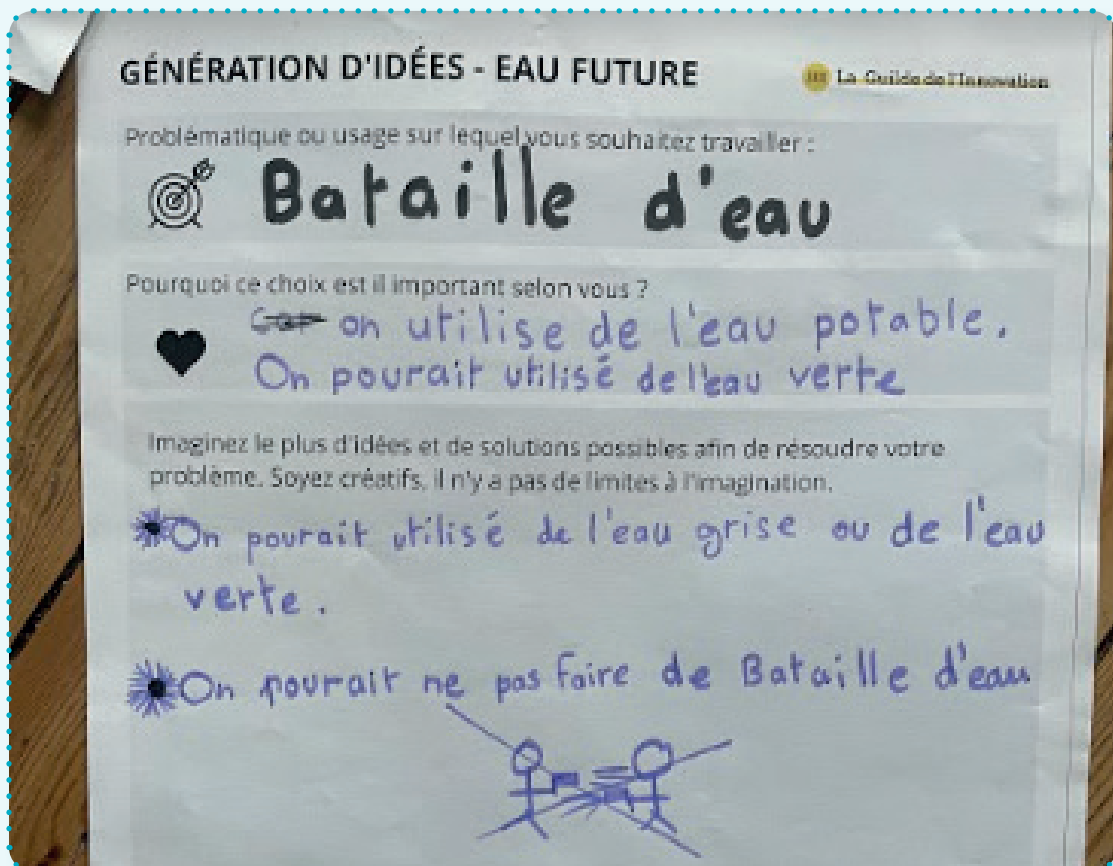 GÉNÉRATION D'IDÉES - EAU FUTURE
La Guilde de l'Innovation
Problématique ou usage sur lequel vous souhaitez travailler :
Bataille d'eau
Pourquoi ce choix est il important selon vous ?
Car on utilise de l'eau potable.
On pourait utilisé de l'eau verte
Imaginez le plus d'idées et de solutions possibles afin de résoudre votre
problème. Soyez créatifs, il n'y a pas de limites à l'imagination.
On pourait utilisé de l'eau grise ou de l'eau
verte.
On pourait ne pas faire de Bataille d'eau